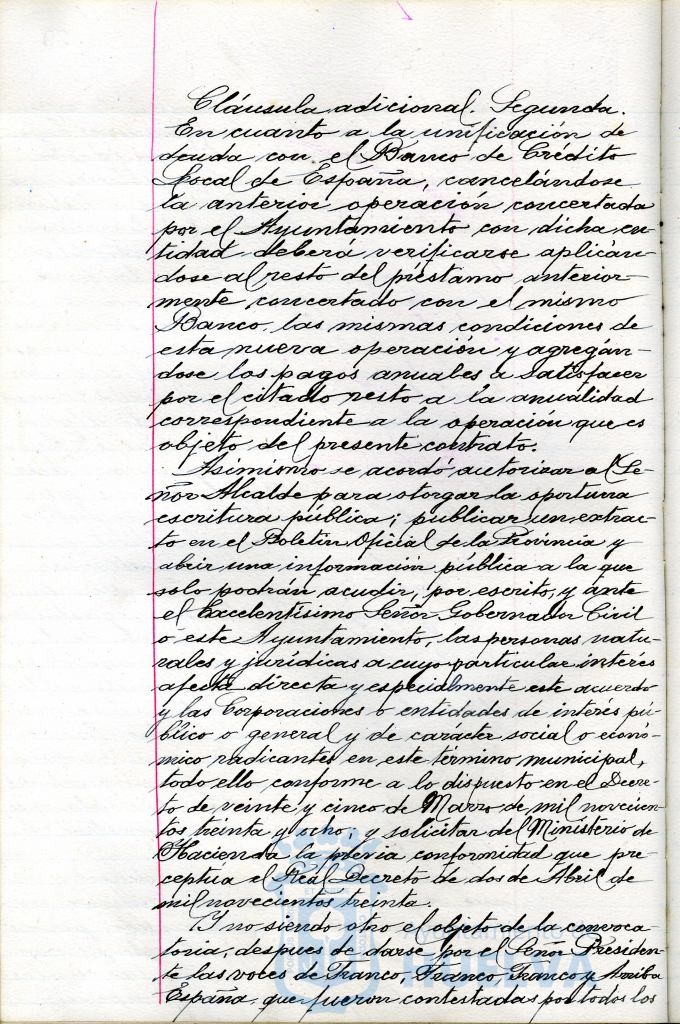 Cláusula adicional. Segunda.
En cuanto a la unificación de
deuda con el Banco de Crédito
Local de España, cancelándose
la anterior operación concertada
por el Ayuntamiento con dicha en-
tidad deberá verificarse aplicán-
dose al resto del préstamo anterior-
mente concertado con el mismo
Banco, las mismas condiciones de
esta nueva operación y agregán-
dose los pagos anuales a satisfacer
por el citado resto a la anualidad
correspondiente a la operación que es
objeto del presente contrato.
Asimismo se acordó autorizar al Se-
ñor Alcalde para otorgar la oportuna
escritura pública; publicar un extrac-
to en el Boletín Oficial de la Provincia y
abrir una información pública a la que
solo podrán acudir, por escrito, y ante
el Excelentísimo Señor Gobernador Civil
o este Ayuntamiento, las personas natu-
rales y jurídicas a cuyo particular interés
afecta directa y especialmente este acuerdo
y las Corporaciones o entidades de interés pú-
blico o general y de carácter social o econó-
mico radicantes en este término municipal,
todo ello conforme a lo dispuesto en el Decre-
to de veinte y cinco de Marzo de mil novecien-
tos treinta y ocho; y solicitar del Ministerio de
Hacienda la previa conformidad que pre-
ceptua el Real Decreto de dos de Abril de
mil novecientos treinta.
Y no siendo otro el objeto de la convoca
toria, despues de darse por el Señor Presiden-
te las voces de Franco, Franco, Franco y Arriba
España, que fueron contestadas por todos los